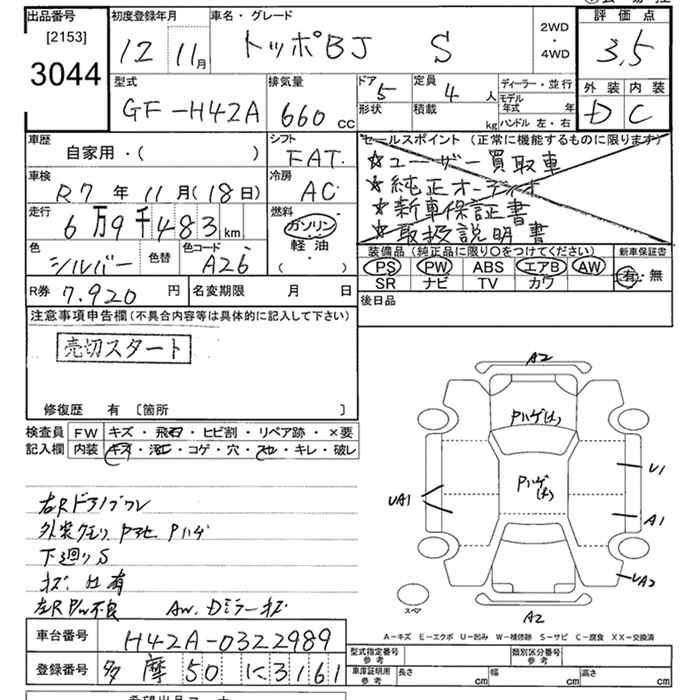 出品番号 初度登録年月 車名・グレード 評価点
[2153]
3044 12 11月 トッポBJ S 2WD・4WD 3.5
型式 排気量 ドア 定員 ディーラー・並行 外装 内装
GF-H42A 660cc 5 4人 モデル年式 年 D C
形状 積載 kg ハンドル 左・右
車歴 シフト セールスポイント (正常に機能するものに限ります)
自家用・( ) FAT ☆ユーザー買取車
車検 冷房 ☆純正オーディオ
R7年11月(18日) AC ☆新車保証書
走行 燃料 ☆取扱説明書
6万9千483km ガソリン
軽油
( ・ )
色 色替 色コード 装備品 (純正品に限り○をつけてください) 新車保証書
シルバー A26 PS PW ABS エアB AW 有・無
SR ナビ TV カワ
R券 7.920円 名変期限 月 日 後日品
注意事項申告欄(不具合内容等は具体的に記入して下さい)
売切スタート
修復歴 有 [箇所 ]
検査員 FW キズ・飛石・ヒビ割・リペア跡・×要
記入欄 内装 キズ・汚・コゲ・穴・・キレ・破レ
A2
Pハゲ(大)
Pハゲ(大)
UA1 U1
A1
UA2
スペア A2
右Rドア
外装クモリ Pハゲ
下廻りS
有
左R P/W不良 AW.Dミラーキズ
A-キズ E-エクボ U-凹み W-補修跡 S-サビ C-腐食 XX-交換済
車台番号 H42A-0322989
型式指定番号 参考 類別区分番号 参考
登録番号 多摩50に3161
車庫証明用 参考 長さ cm 幅 cm 高さ cm